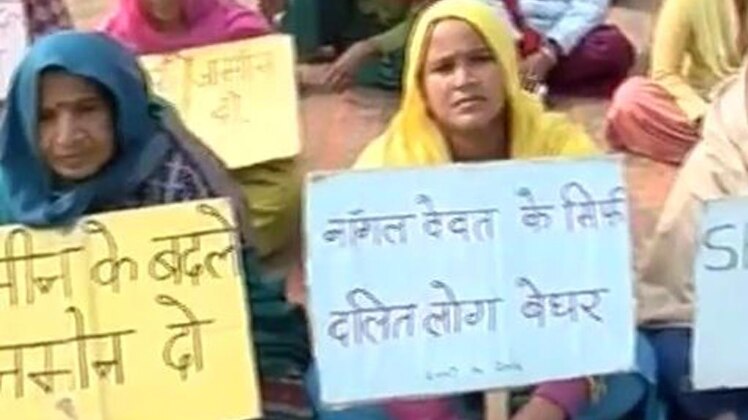 जमीन
दो
मीन के बदले
जमीन दो
नॉगल देवत के सिर्फ
दलित लोग बेघर